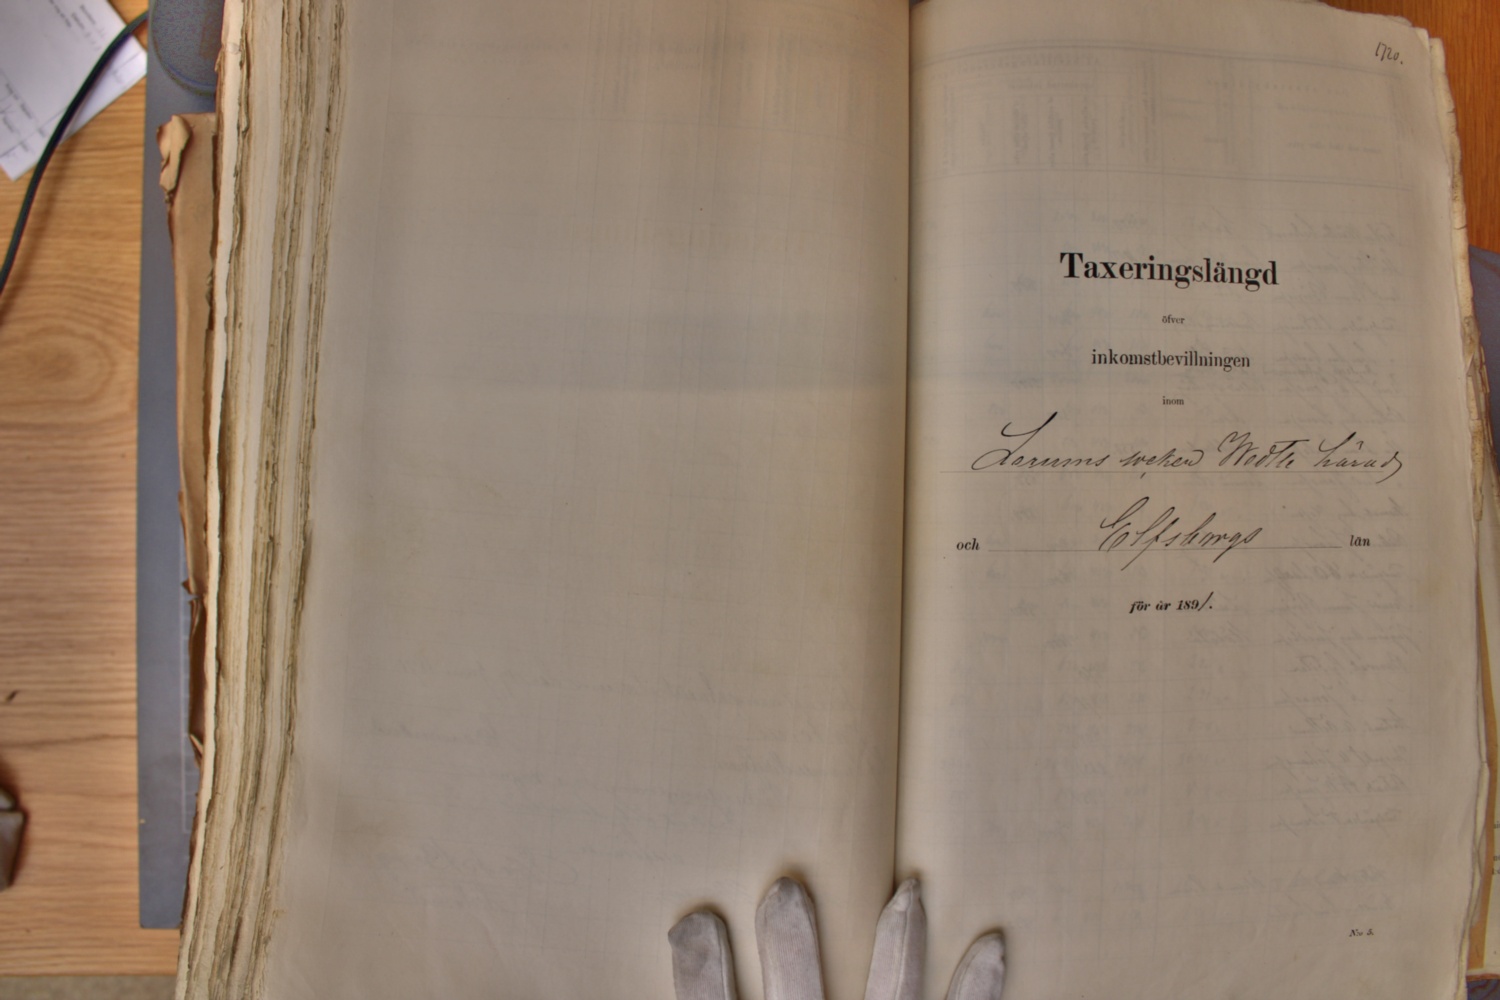 1720.
Taxeringslängd
öfver
inkomstbevillningen
inom
Larums socken Wedtle härad
och Elfsborgs län
för år 1891.
N:o 5.